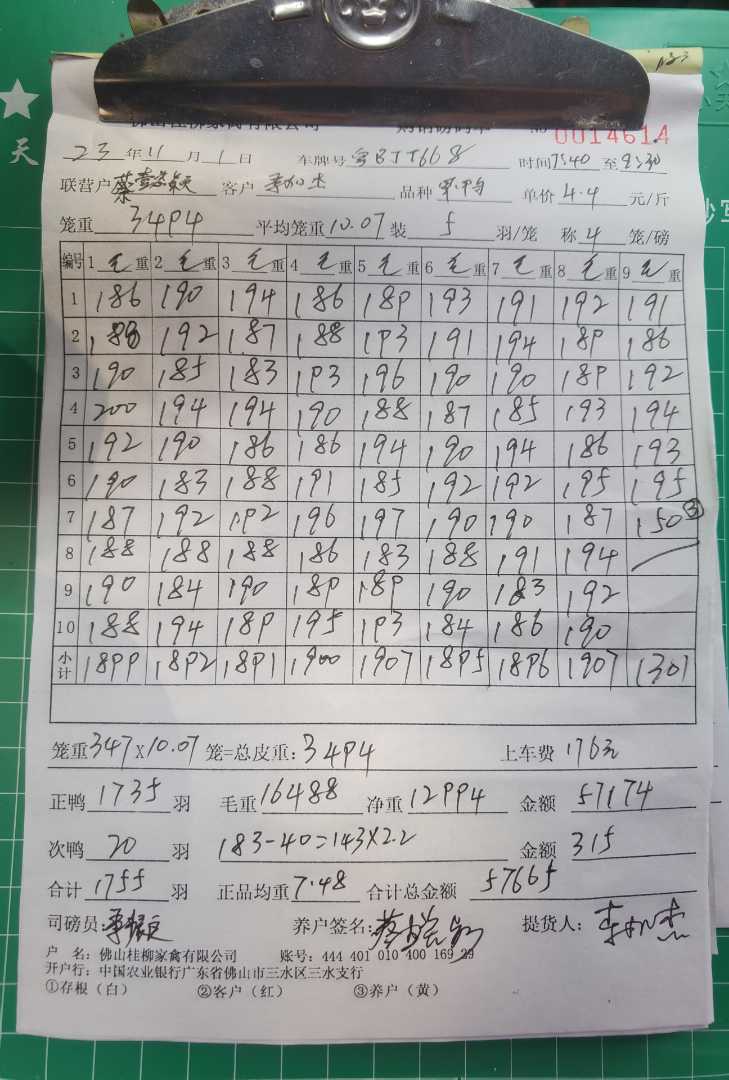 佛山桂柳家禽有限公司 购销磅码单 № 0014614
23 年 11 月 1 日 车牌号 粤BJT668 时间7:40 至 9:30
联营户 客户 品种 单价 4.4 元/斤
笼重 3494 平均笼重 10.07 装 5 羽/笼 称 4 笼/磅
编号 1 毛 重 2 毛 重 3 毛 重 4 毛 重 5 毛 重 6 毛 重 7 毛 重 8 毛 重 9 毛 重
1 186 190 194 186 189 193 191 192 191
2 188 192 187 188 193 191 194 189 186
3 190 185 183 193 196 190 190 189 192
4 200 194 194 190 188 187 185 193 194
5 192 190 186 186 194 190 194 186 193
6 190 183 188 191 185 192 192 195 195
7 187 192 192 196 197 190 190 187 150 ③
8 188 188 188 186 183 188 191 194
9 190 184 190 189 189 190 183 192
10 188 194 189 195 193 184 186 190
小计 1899 1892 1891 1900 1907 1895 1896 1907 1301
笼重 347 X 10.07 笼=总皮重: 3494 上车费 176元
正鸭 1735 羽 毛重 16488 净重 12994 金额 57174
次鸭 20 羽 183-40=143X2.2 金额 315
合计 1755 羽 正品均重 7.48 合计总金额 57665
司磅员: 养户签名: 提货人:
户 名: 佛山桂柳家禽有限公司 账号: 444 401 010 400 169 29
开户行: 中国农业银行广东省佛山市三水区三水支行
①存根(白) ②客户(红) ③养户(黄)
天